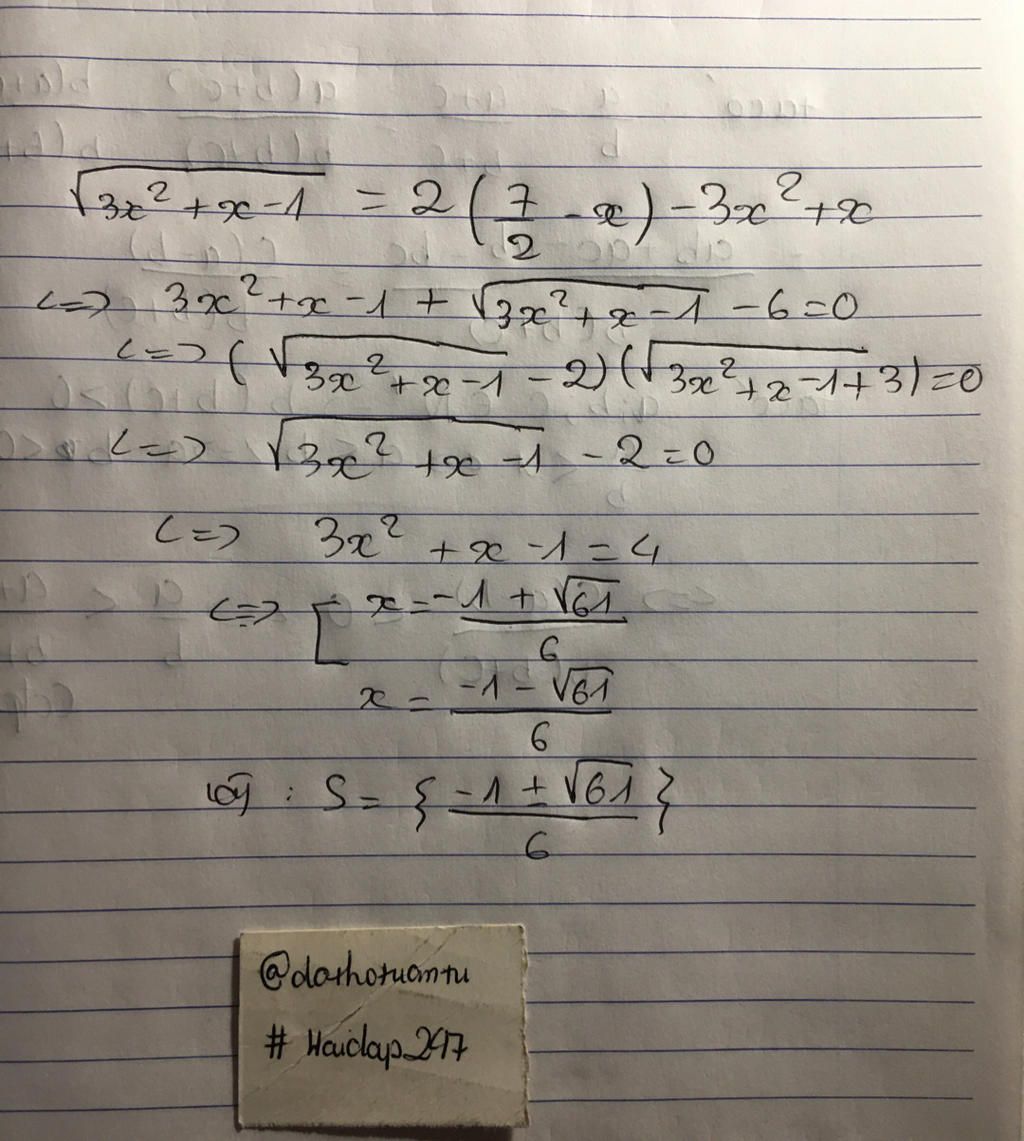 √(3x² + x - 1) = 2(7/2 - x) - 3x² + x
<=> 3x² + x - 1 + √(3x² + x - 1) - 6 = 0
<=> (√(3x² + x - 1) - 2)(√(3x² + x - 1 + 3)) = 0
<=> √(3x² + x - 1) - 2 = 0
<=> 3x² + x - 1 = 4
<=> [ x = (-1 + √61)/6
x = (-1 - √61)/6
: S = { (-1 ± √61)/6 }
@dathotuantu
# Hoidap247